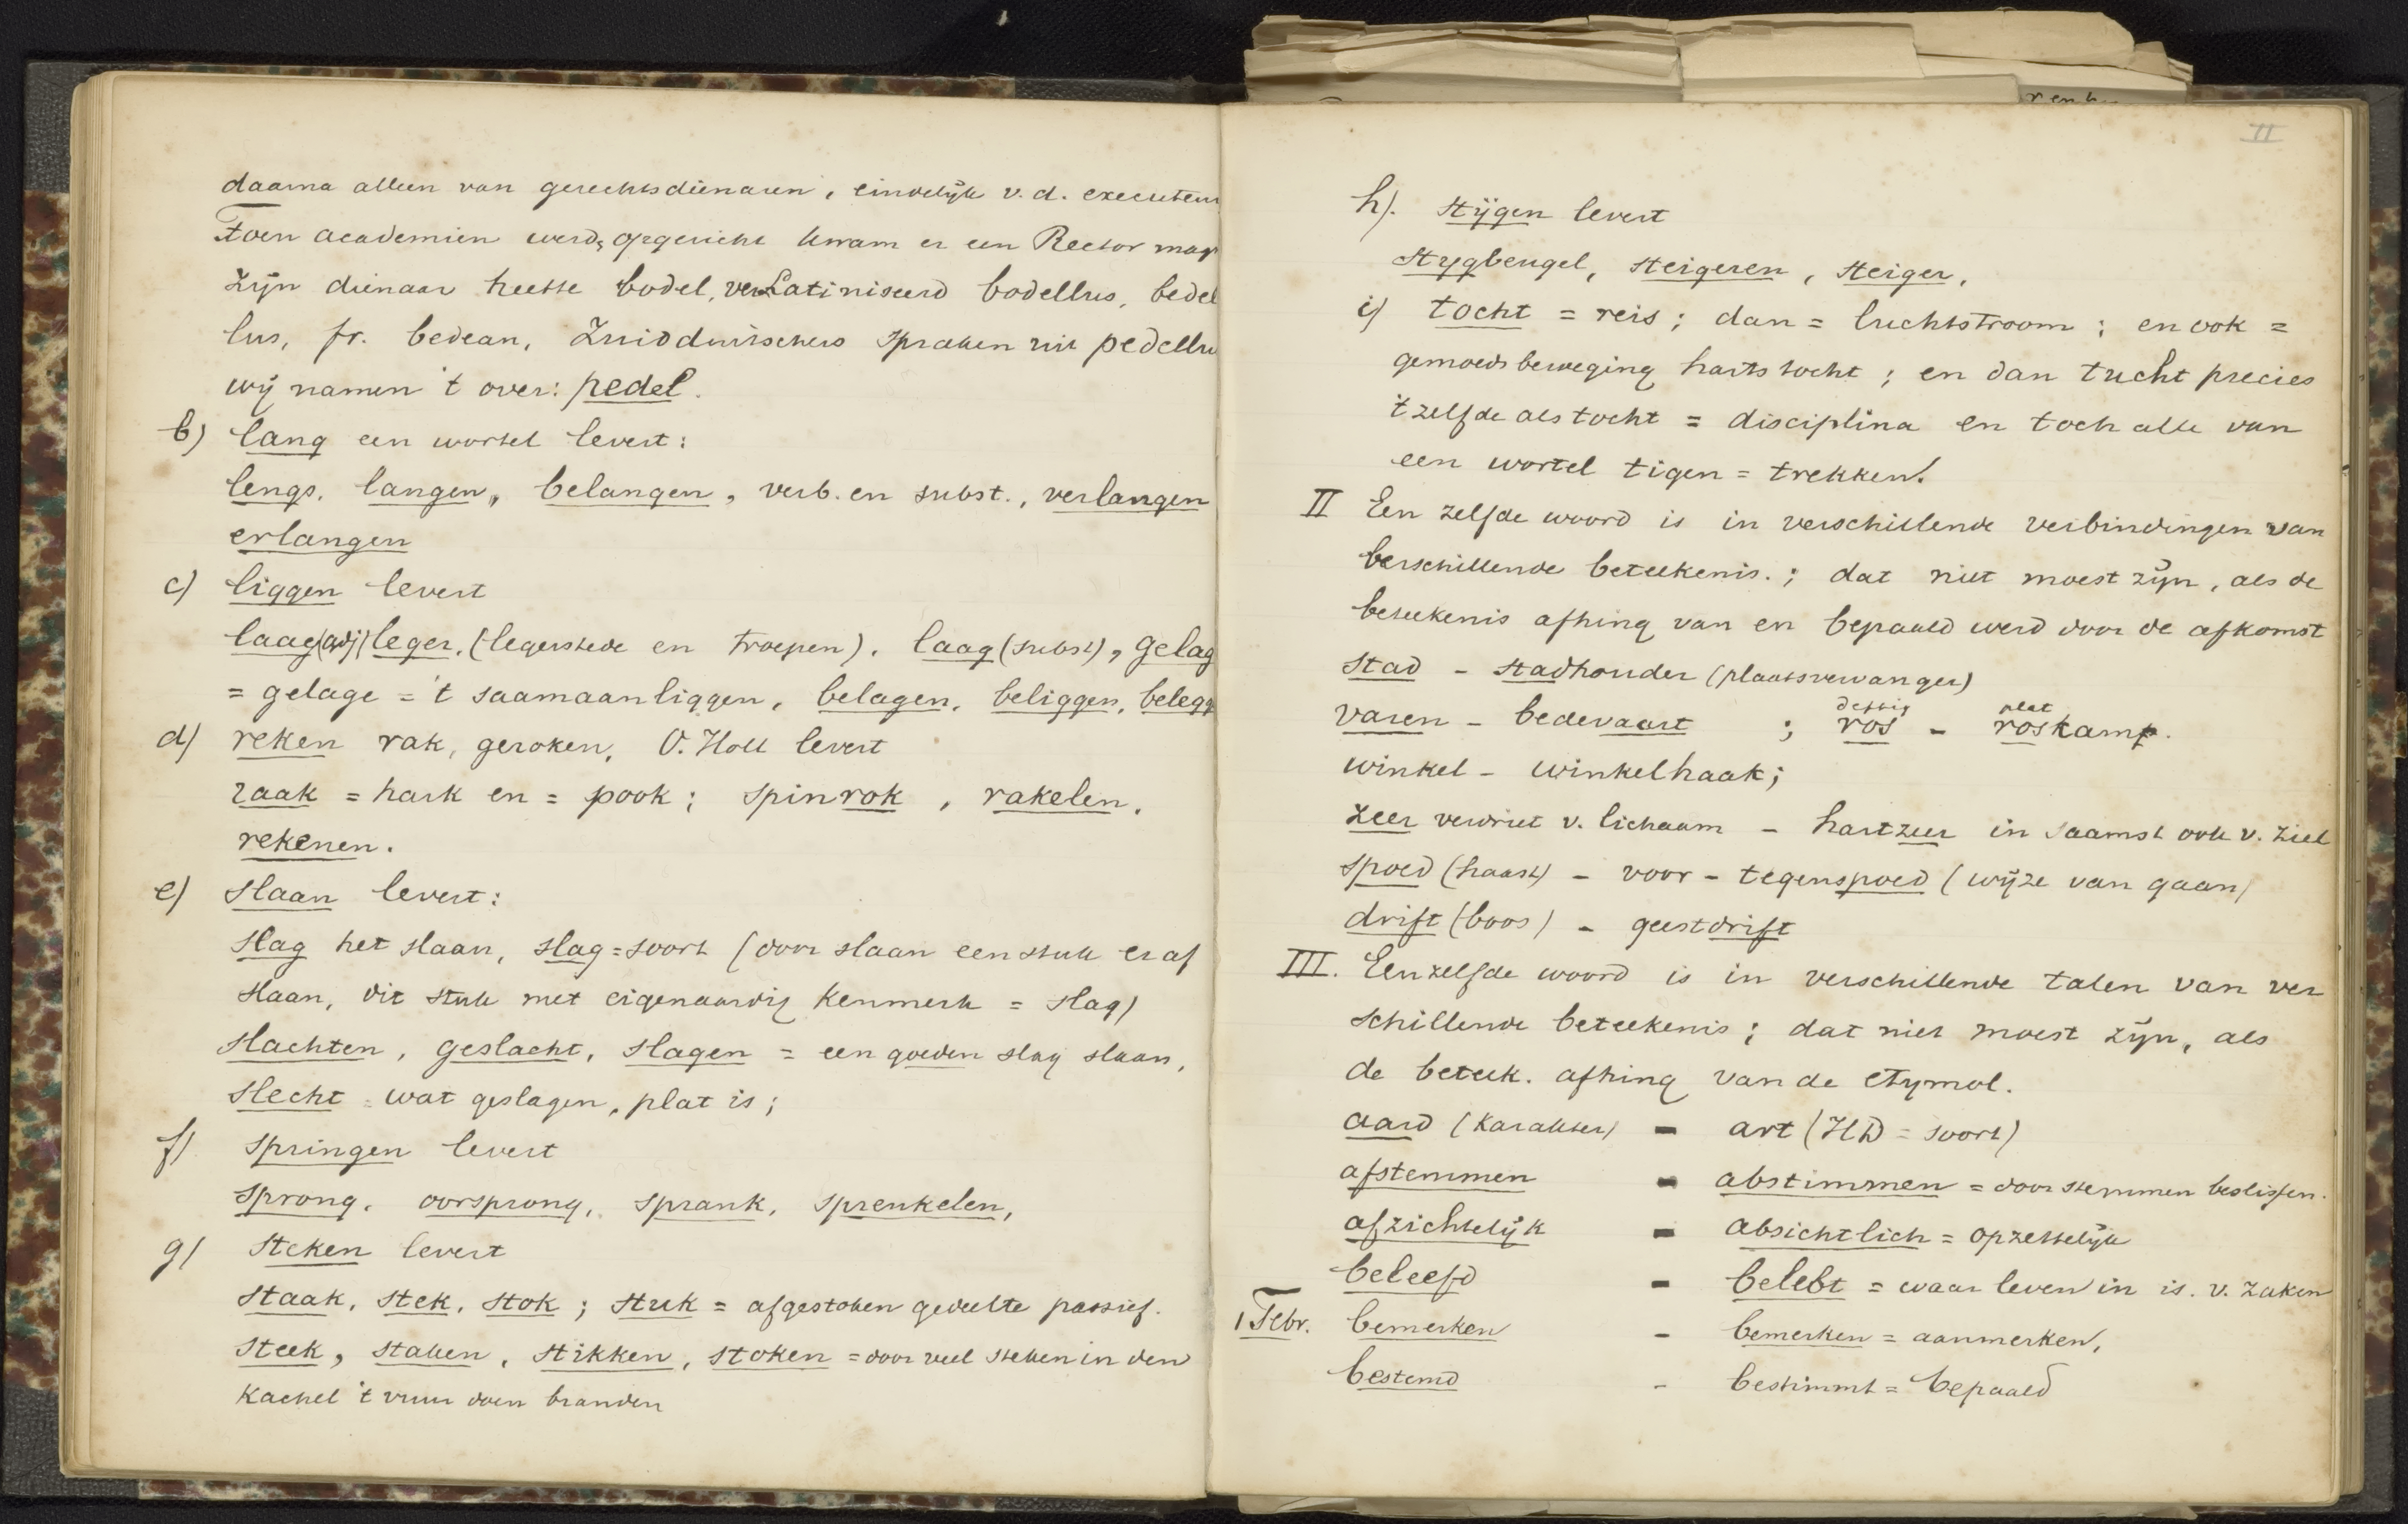 daarna alleen van gerechtsdienaren, eindelijk v. d. executeur
Toen academien werd opgericht kwam er een Rector mag
zijn dienaar heette bodel, verLatiniseerd bodellus, bedel
lus, fr. bedeau, Zuidduitschers spraken uit pedellus
wij namen 't over: pedel.
b) lang een wortel levert:
lengs, langen, belangen, verb. en subst., verlangen
erlangen
c) liggen levert
laag (adj) leger, (legerstede en troepen). laag (subst), gelag
= gelage = 't saamaanliggen, belagen, beliggen, belegg
d) reken rak, geroken, O. Holl levert
raak = hark en = pook; spinrok, rakelen,
rekenen.
e) slaan levert:
slag het slaan, slag = soort (door slaan een stuk er af
slaan, dit stuk met eigenaardig kenmerk = slag)
slachten, geslacht, slagen = een goeden slag slaan,
slecht = wat geslagen, plat is;
f) springen levert
sprong, oorsprong, sprank, sprenkelen,
g) steken levert
staak, stek, stok; stuk = afgestoken gedeelte passief.
steek, staken, stikken, stoken = door veel steken in den
kachel 't vuur doen branden
II
h). stijgen levert
stygbeugel, steigeren, steiger,
i) tocht = reis; dan = luchtstroom; en ook =
gemoedsbeweging hartstocht; en dan tucht precies
't zelfde als tocht = disciplina en toch alle van
een wortel tigen = trekken!
II Een zelfde woord is in verschillende verbindingen van
verschillende beteekenis.; dat niet moest zijn, als de
beteekenis afhing van en bepaald werd door de afkomst
stad - stadhouder (plaatsvervanger)
deftig plat
varen - bedevaart ; ros - roskamp.
winkel - winkelhaak;
zeer verdriet v. lichaam - hartzeer in saamst ook v. ziel
spoed (haast) - voor - tegenspoed (wijze van gaan)
drift (boos) - geestdrift
III. Eenzelfde woord is in verschillende talen van ver
schillende beteekenis; dat niet moest zijn, als
de beteek. afhing van de etymol.
aard (karakter) - art (HD = soort)
afstemmen - abstimmen = door stemmen beslissen.
afzichtelijk - absichtlich = opzettelijk
beleefd - belebt = waar leven in is. v. zaken
1 Febr. bemerken - bemerken = aanmerken,
bestemd - bestimmt = bepaald